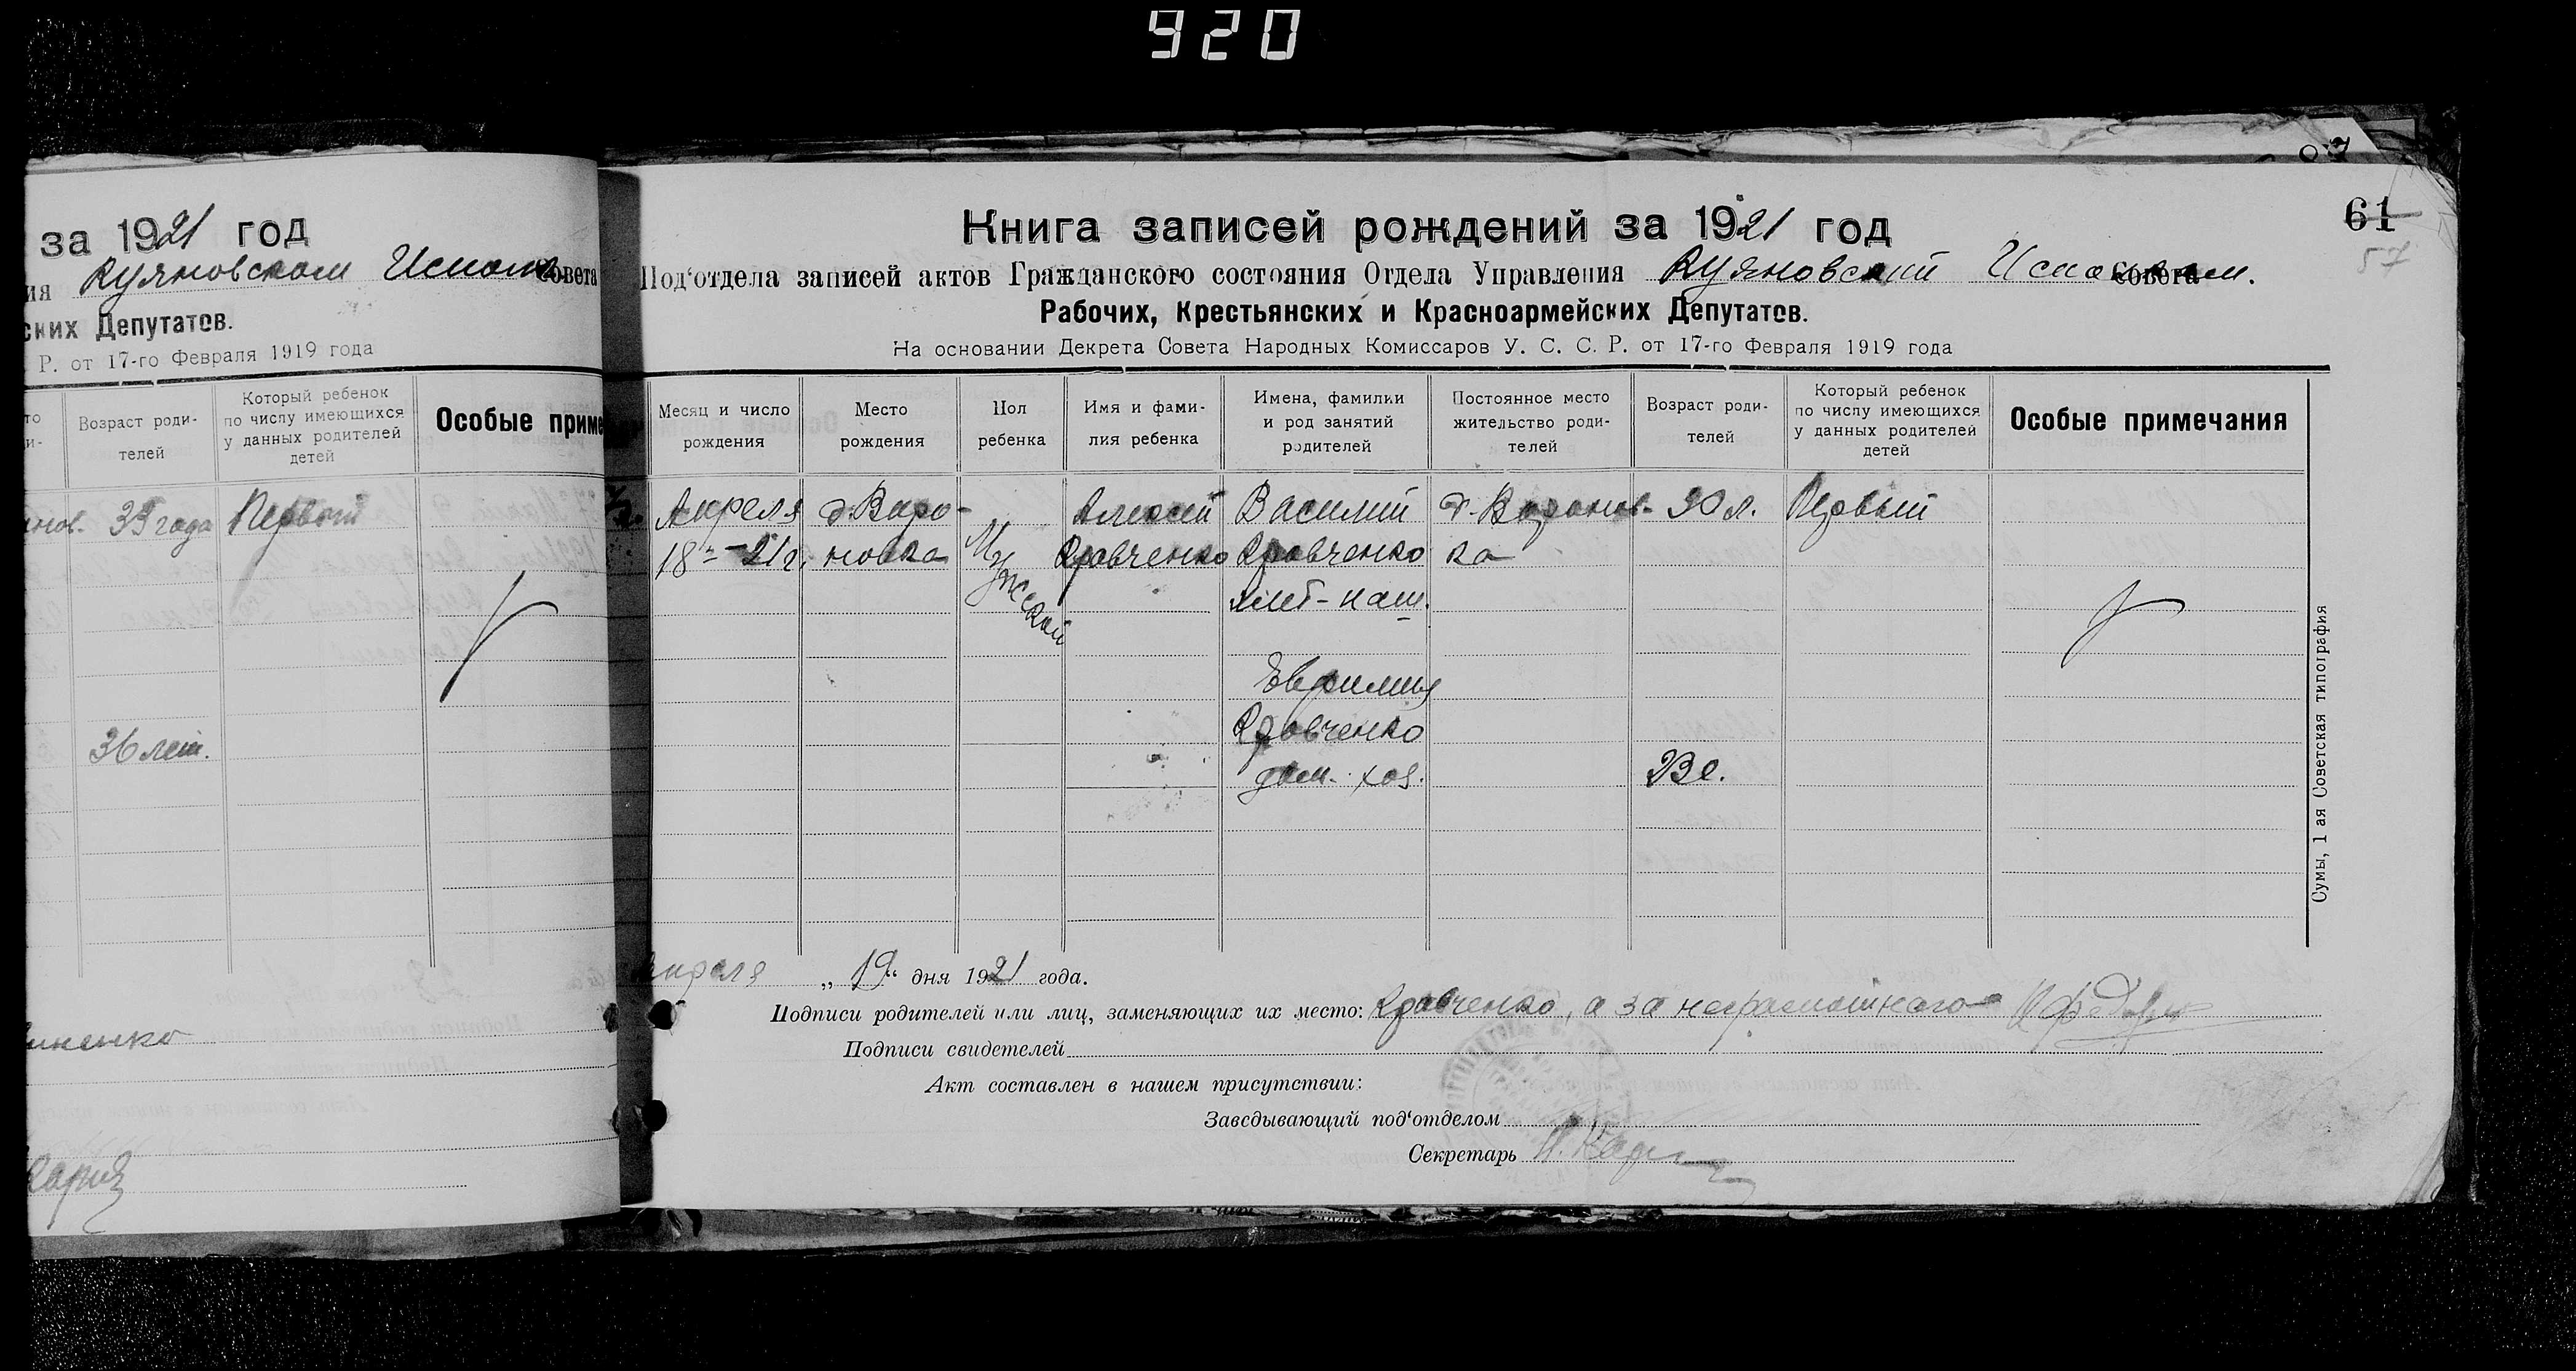 920
за 1921 год
ия Куяновском Исполк Совета
ских Депутатов.
Р. от 17-го Февраля 1919 года
Возраст роди-
телей
Который ребенок
по числу имеющихся
у данных родителей
детей
Особые приме
нов. 35 года Первый
36 лет.
иненко
61
57
Книга записей рождений за 1921 год
Под‘отдела записей актов Гражданского состояния Отдела Управления Куяновский Исполком. Совета
Рабочих, Крестьянских и Красноармейских Депутатов.
На основании Декрета Совета Народных Комиссаров У. С. С. Р. от 17-го Февраля 1919 года
Месяц и число
рождения
Место
рождения
Пол
ребенка
Имя и фами-
лия ребенка
Имена, фамилии
и род занятий
родителей
Постоянное место
жительство роди-
телей
Возраст роди-
телей
Который ребенок
по числу имеющихся
у данных родителей
детей
Особые примечания
Апреля
18го - 21 г.
д. Варо-
новка
Мужской
Алексей
Кравченко
Василий
Кравченко
хлеб-паш.
Евфимия
Кравченко
дом. хоз.
д. Воронов-
ка
30 л.
23 л.
Первый
Апреля „19“ дня 1921 года.
Подписи родителей или лиц, заменяющих их место: Кравченко, а за неграмотного
Подписи свидетелей
Акт составлен в нашем присутствии:
Заведывающий под‘отделом
Секретарь
Сумы, 1 ая Советская типография